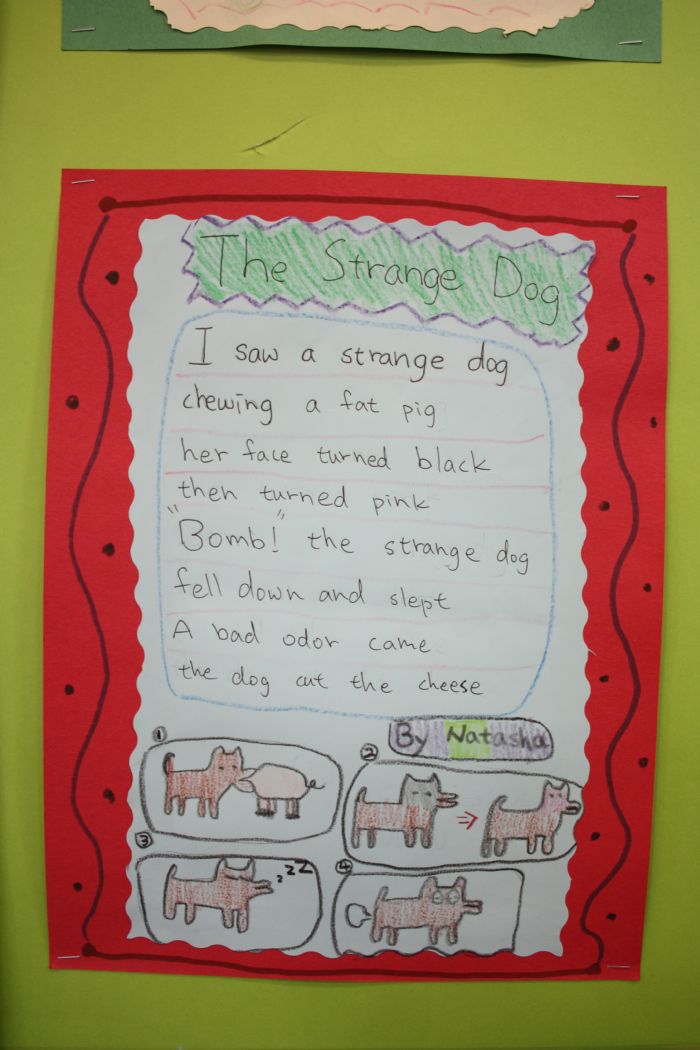 The Strange Dog
I saw a strange dog
chewing a fat pig
her face turned black
then turned pink
"Bomb!" the strange dog
fell down and slept
A bad odor came
the dog cut the cheese
By Natasha
① ②
③ zzZ ④